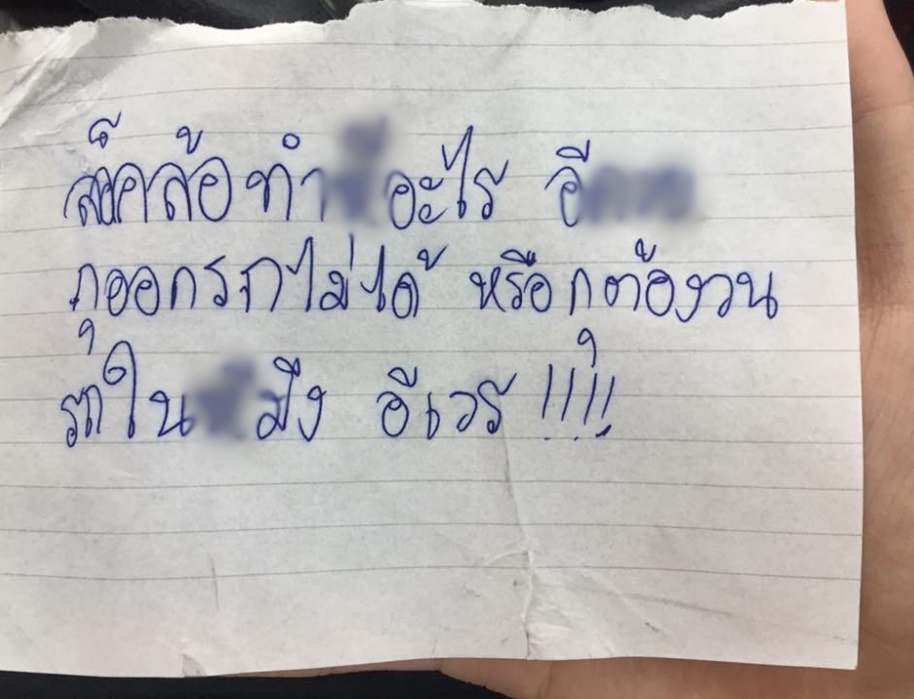 ล็อคล้อทำ อะไร อี
กูออกรถไม่ได้ หรือกูต้องวน
รถใน มึง อีเวร !!!!